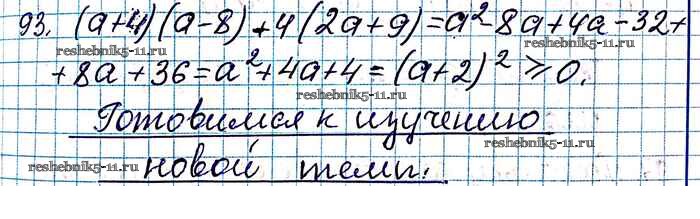 93. (a+4)(a-8)+4(2a+9)=a²-8a+4a-32+
+8a+36=a²+4a+4=(a+2)²⩾0.
Готовимся к изучению
новой темы.
reshebnik5-11.ru
reshebnik5-11.ru
reshebnik5-11.ru
reshebnik5-11.ru
reshebnik5-11.ru
reshebnik5-11.ru
reshebnik5-11.ru